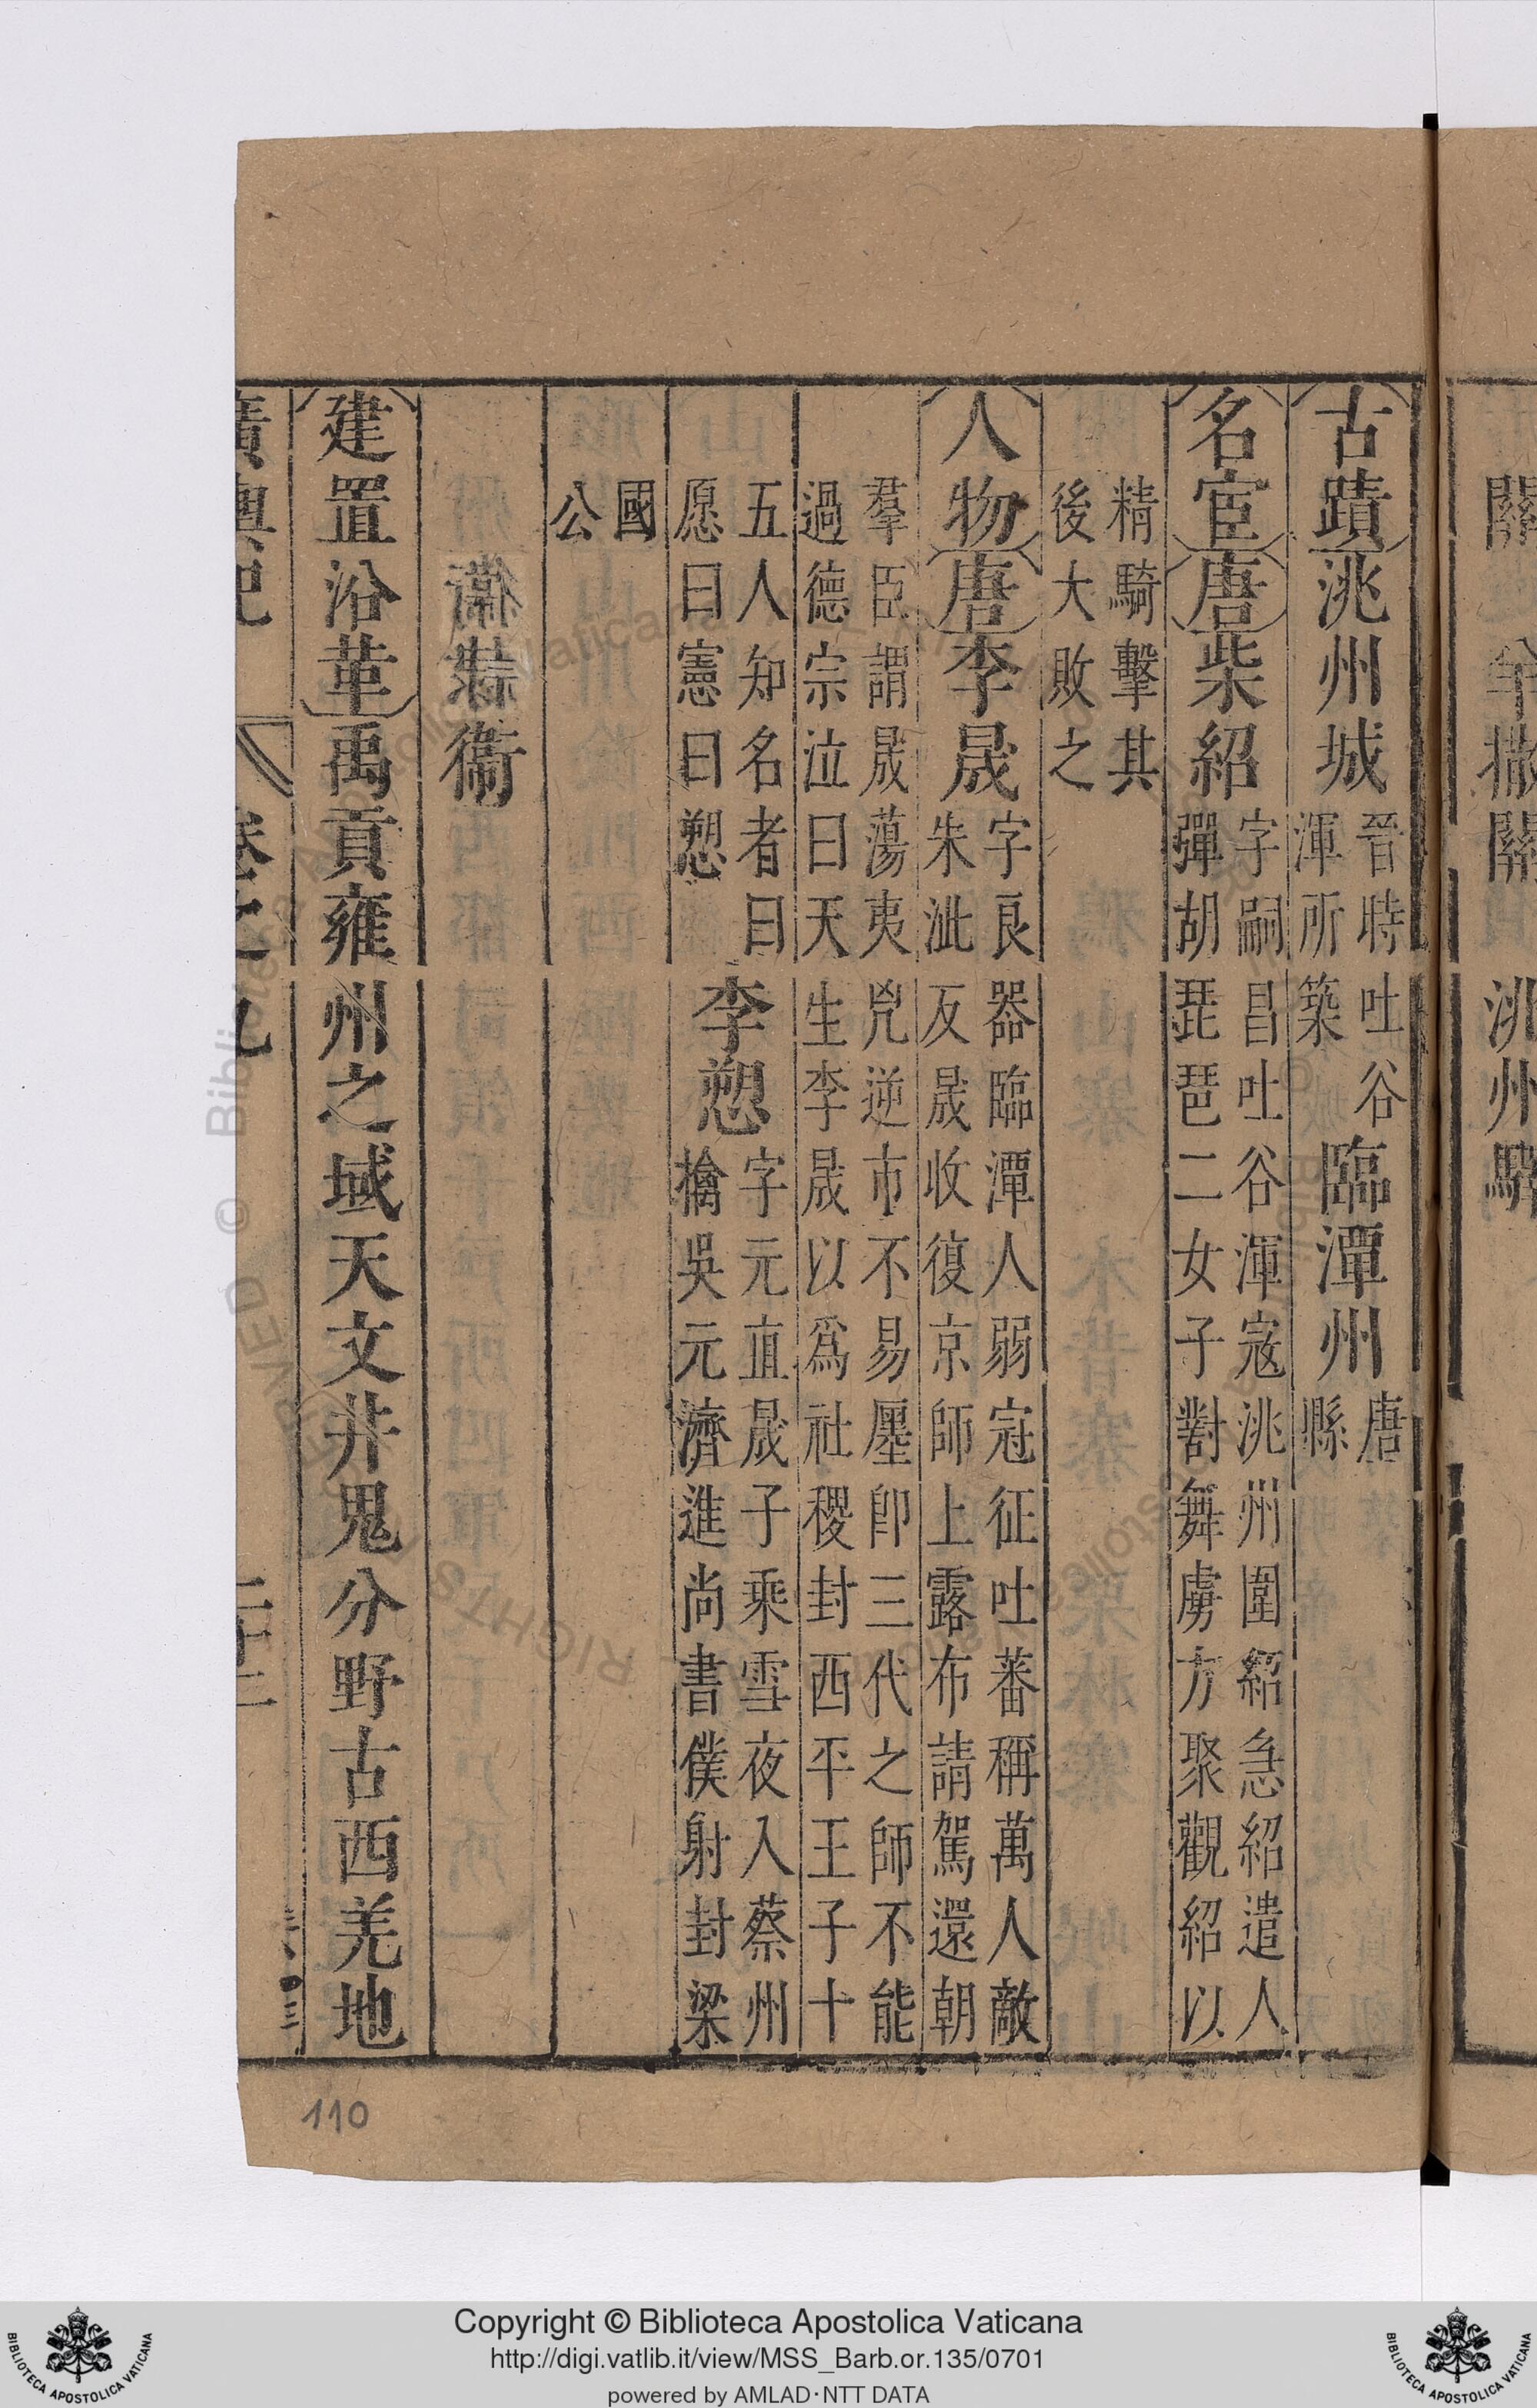 關 羊撒關 洮州驛
古蹟 洮州城 晉時吐谷渾所築 臨潭州 唐縣
名宦 唐 柴紹 字嗣昌吐谷渾寇洮州圍紹急紹遣人彈胡琵琶二女子對舞虜方聚觀紹以
精騎擊其後大敗之
人物 唐 李晟 字良器臨潭人弱冠征吐蕃稱萬人敵朱泚反晟收復京師上露布請駕還朝
羣臣謂晟蕩夷兇逆市不易廛卽三代之師不能過德宗泣曰天生李晟以爲社稷封西平王子十
五人知名者曰愿曰憲曰愬 李愬 字元直晟子乘雪夜入蔡州擒吳元濟進尚書僕射封梁
國公
衛
建置沿革 禹貢雍州之域天文井鬼分野古西羌地
廣輿記 卷之九 二十二
110
Copyright © Biblioteca Apostolica Vaticana
http://digi.vatlib.it/view/MSS_Barb.or.135/0701
powered by AMLAD·NTT DATA
BIBLIOTECA APOSTOLICA VATICANA
BIBLIOTECA APOSTOLICA VATICANA